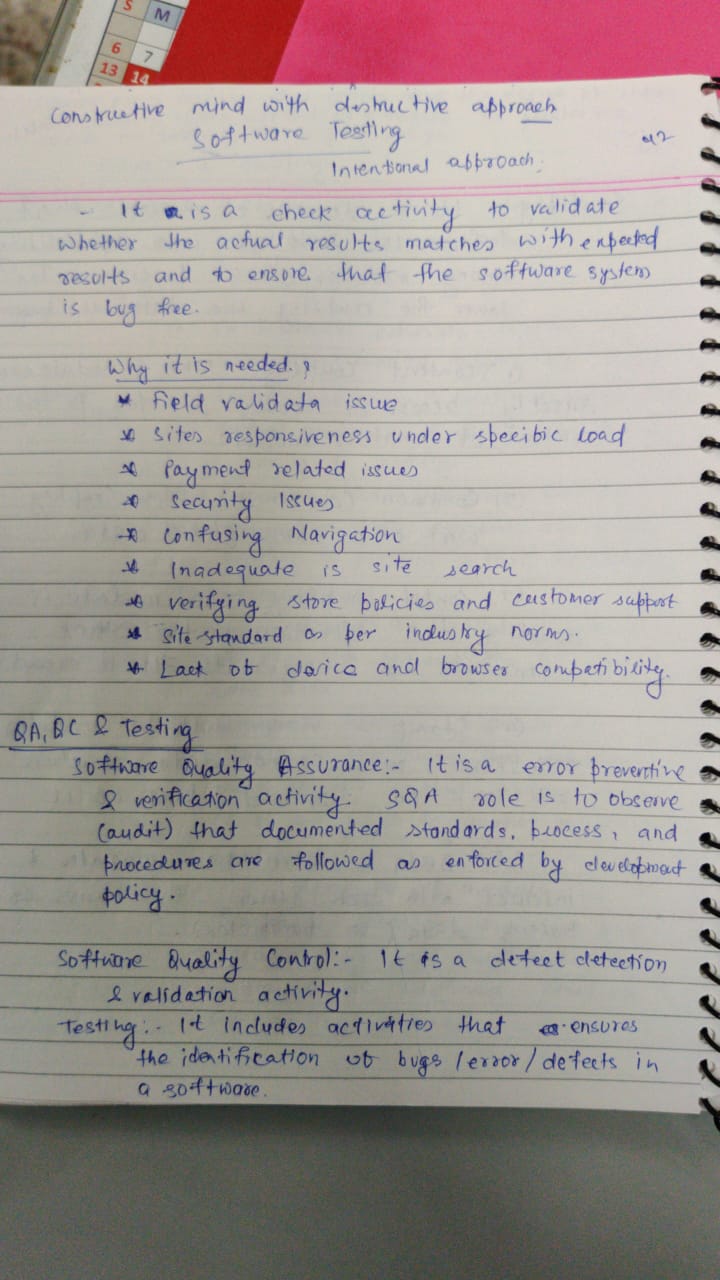 S M
6 7
13 14
Constructive mind with destructive approach
Software Testing
Intentional approach.
- It is a check activity to validate
whether the actual results matches with expected
results and to ensure that the software system
is bug free.
Why it is needed.?
* Field validata issue
* Sites responsiveness under specific load
* Payment related issues
* Security Issues
* Confusing Navigation
* Inadequate is site search
* verifying store policies and customer support
* Site standard as per industry norms.
* Lack of device and browser compatibility.
QA, QC & Testing
Software Quality Assurance:- It is a error preventive
& verification activity. SQA role is to observe
(audit) that documented standards, process, and
procedures are followed as enforced by development
policy.
Software Quality Control:- It is a defect detection
& validation activity.
Testing:- It includes activities that ensures
the identification of bugs/error/defects in
a software.